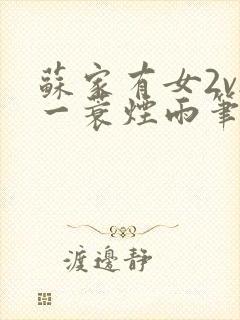 蘇家有女2v
一蓑煙雨筆
渡邊靜